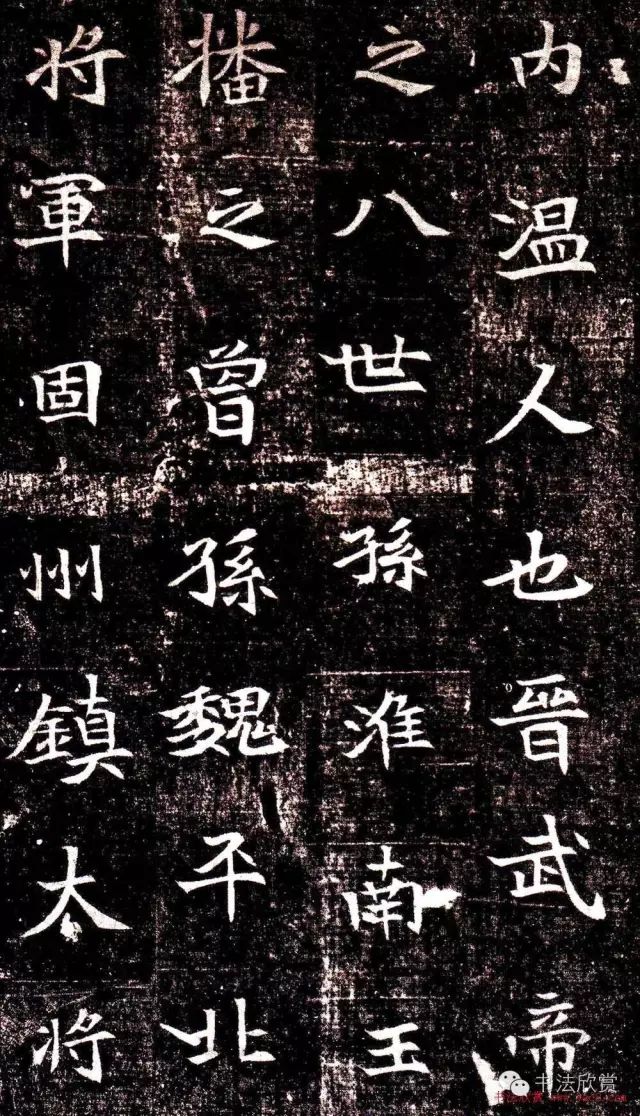 内温人也晉武帝
之八世孫淮南王
播之曾孫魏平北
将軍固州鎮大将
书法欣赏